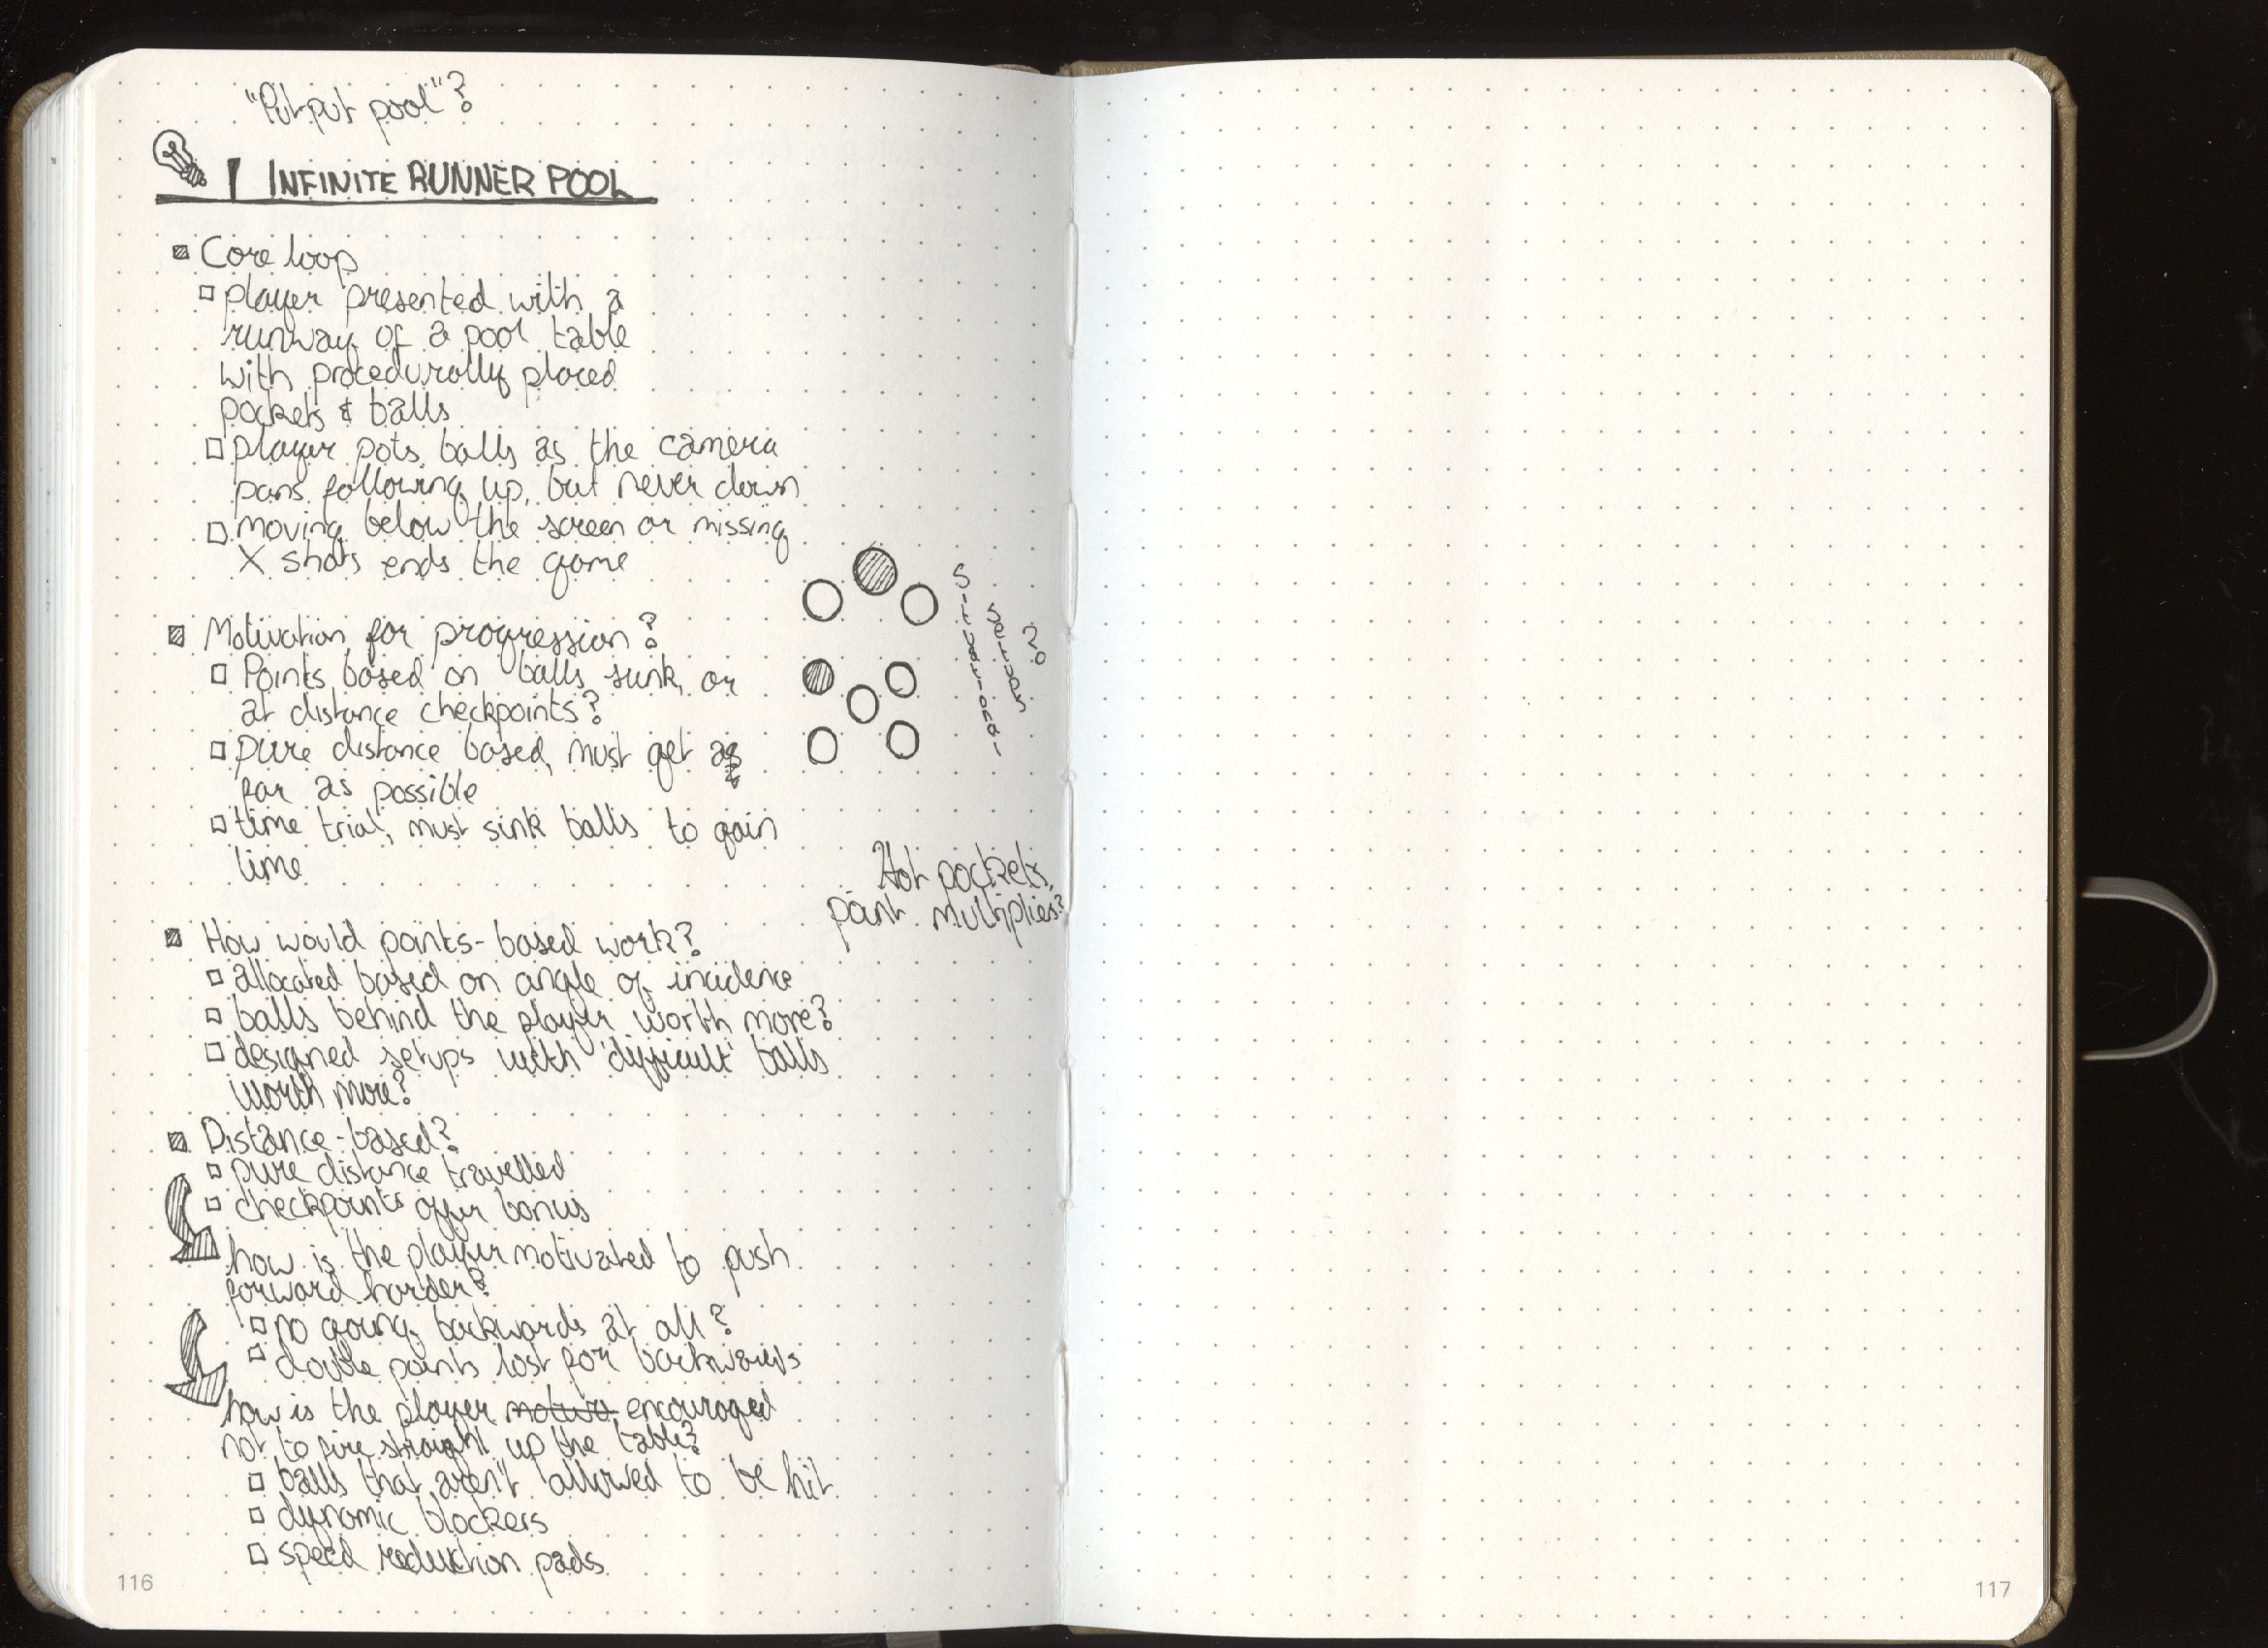 "Putput pool"?
1 INFINITE RUNNER POOL
Core loop
player presented with a
runway of a pool table
with procedurally placed
pockets & balls
player pots balls as the camera
pans following up, but never down
moving below the screen or missing
X shots ends the game
Motivation for progression?
Points based on balls sunk, or
at distance checkpoints?
pure distance based, must get as
far as possible
time trial, must sink balls to gain
time
Hot pockets,
point multiplies?
How would points-based work?
allocated based on angle of incidence
balls behind the player worth more?
designed setups with 'difficult' balls
worth more?
Distance-based?
pure distance travelled
checkpoints offer bonus
how is the player motivated to push
forward harder?
no going backwards at all?
double points lost for backwards
how is the player motiva encouraged
not to fire straight up the table?
balls that aren't allowed to be hit
dynamic blockers
speed reduction pads
116
117